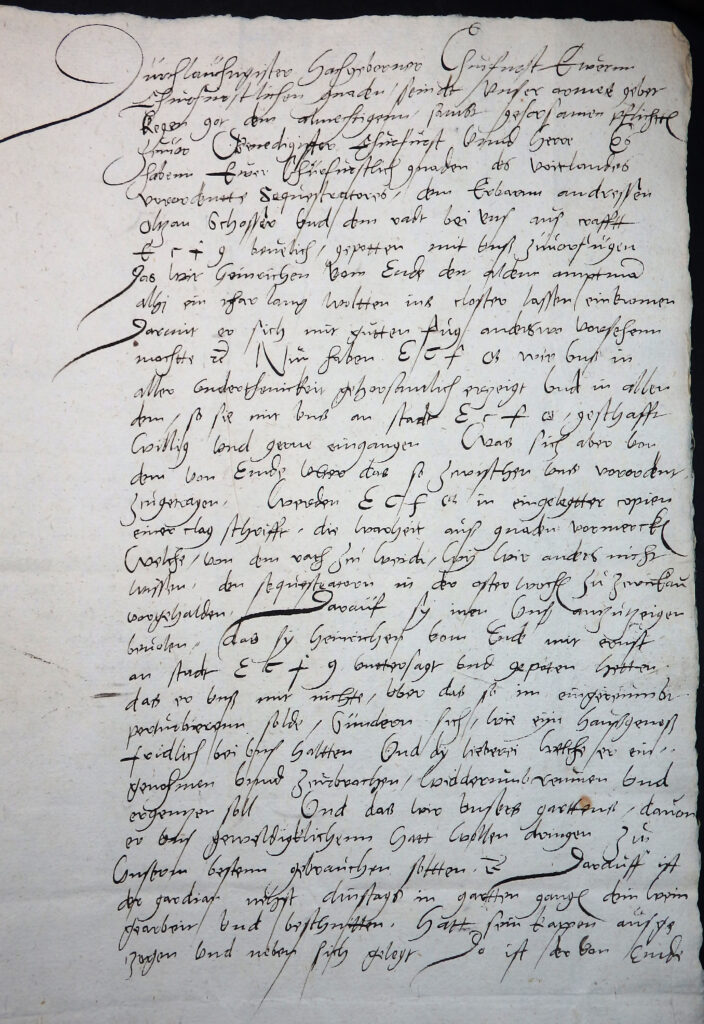 Durchlauchtigister hochgeborner Churfurst Ewernn
Churfurstlichen gnaden, seindt unser armes gebet
kegen got dem almechtigenn, sambt gehorsamen pflichten
zuuor Genedigister Churfurst unnd Herre Es
habenn Ewer Churfurstlich gnaden des Voitlandes
verordnette Sequestratores, dem Erbarnn andressen
Schosser und dem radt bei uns aus crafft
E c f g beuelich, gepotten mit unß zuuorfugen
Das wir Heinrichen vom Ende den alden amptman
alhj ein ihar lang woltten ins closter lassen einkomen
Darmit er sich mit gutten fug anderswo vorsehenn
mochtte Nun haben E c f g wir uns in
aller underthenickeit gehorsamlich erzeigt und in allen
dem, so sie mit uns an stadt E c f g, geschafft
willig und gerne eingangen Was sich aber von
dem von Ende uber das so zwischen uns verordent
zugetragen, Werden E c f g in eingelegtter copien
einer clag schrifft, die warheit aus gnaden vormercken
Welche, von dem rath zu weida, wij wir anders nicht
wissen, den sequestratorn in der osterwochen zu zwickau
vorgehalden. Darauff sij uns anzutzeigen
beuolen, das sij Heinrichen vom Ende mit ernst
an stadt E c f g untersagt und gepoten hetten
das er unß mit nichte, uber das so im eingereumbt
perturbierenn solde, Sundern sich, wie eijn haußgenoß
fridlich bei uns haltten Und dij lieberei welche er ein
genohmen unnd zurbrochen, widderumb reumen und
ergentzen soll Und das wir unsers garttens, davon
er uns geweldigklichenn hatt wollen dringen zu
unserm bestenn gebrauchen soltten. Darauff ist
der gardian nehst dinstags in gartten gangen den wein
gearbeit und beschnitten. Hatt sein kappen außge
zogen und neben sich gelegt Do ist der von Ende